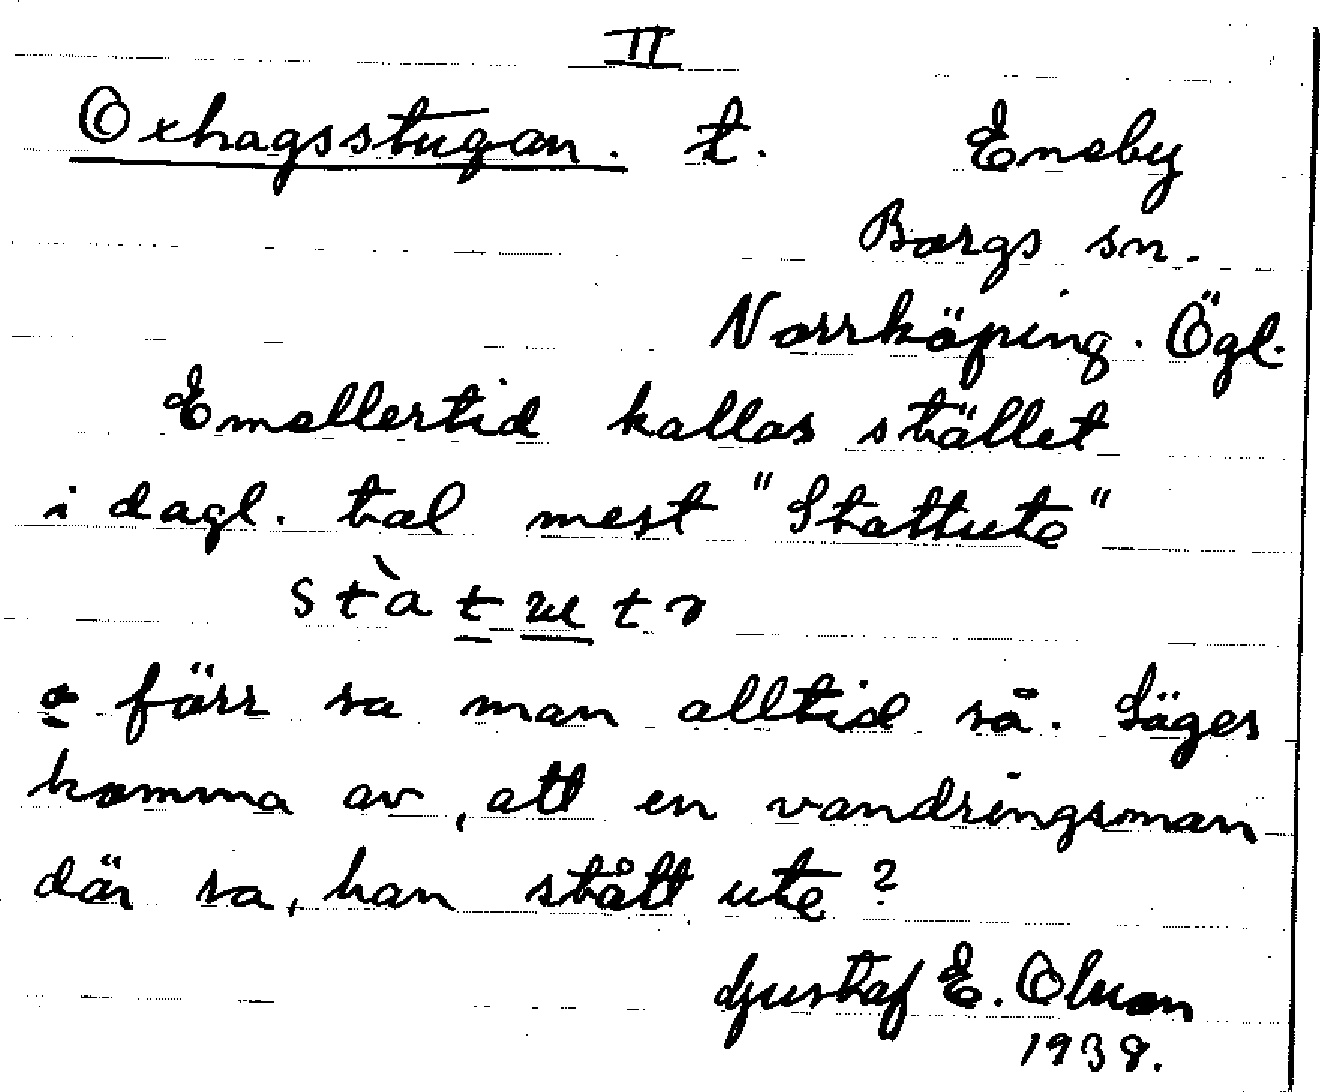 II
Oxhagsstugan. t. Eneby
Borgs sn.
Norrköping. Ögl.
Emellertid kallas stället
i dagl. tal mest "Stattute"
stàtutə
o förr sa man alltid så. Säges
komma av, att en vandringsman
där sa, han stått ute?
Gustaf E. Olsson
1938.